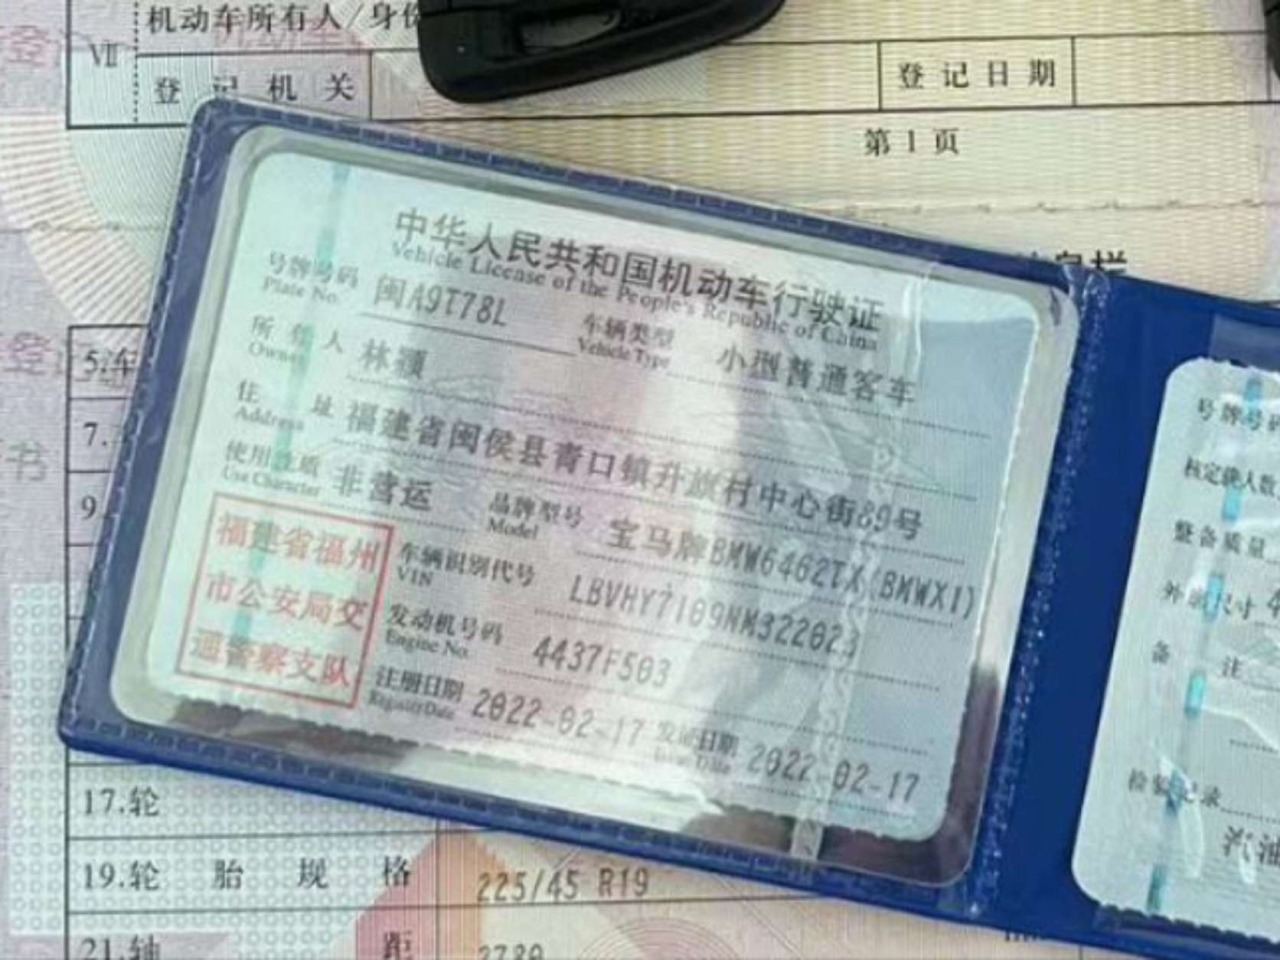 机动车所有人/身份
VII
登记机关
登记日期
第1页
中华人民共和国机动车行驶证
Vehicle License of the People's Republic of China
号牌号码 闽A9T78L 车辆类型 小型普通客车
Plate No. Vehicle Type
所有人 林颖
Owner
住址 福建省闽侯县青口镇升旗村中心街89号
Address
使用性质 非营运 品牌型号 宝马牌BMW6462TX(BMWX1)
Use Character Model
福建省福州
市公安局交
通警察支队
车辆识别代号 LBVHY7109NM322023
VIN
发动机号码 4437F503
Engine No.
注册日期 2022-02-17 发证日期 2022-02-17
Register Date Issue Date
号牌号码
核定载人数
整备质量
外廓尺寸
备注
检验记录
汽油
5.车
7.
9.
17.轮
19.轮胎规格 225/45 R19
21.轴距 2780